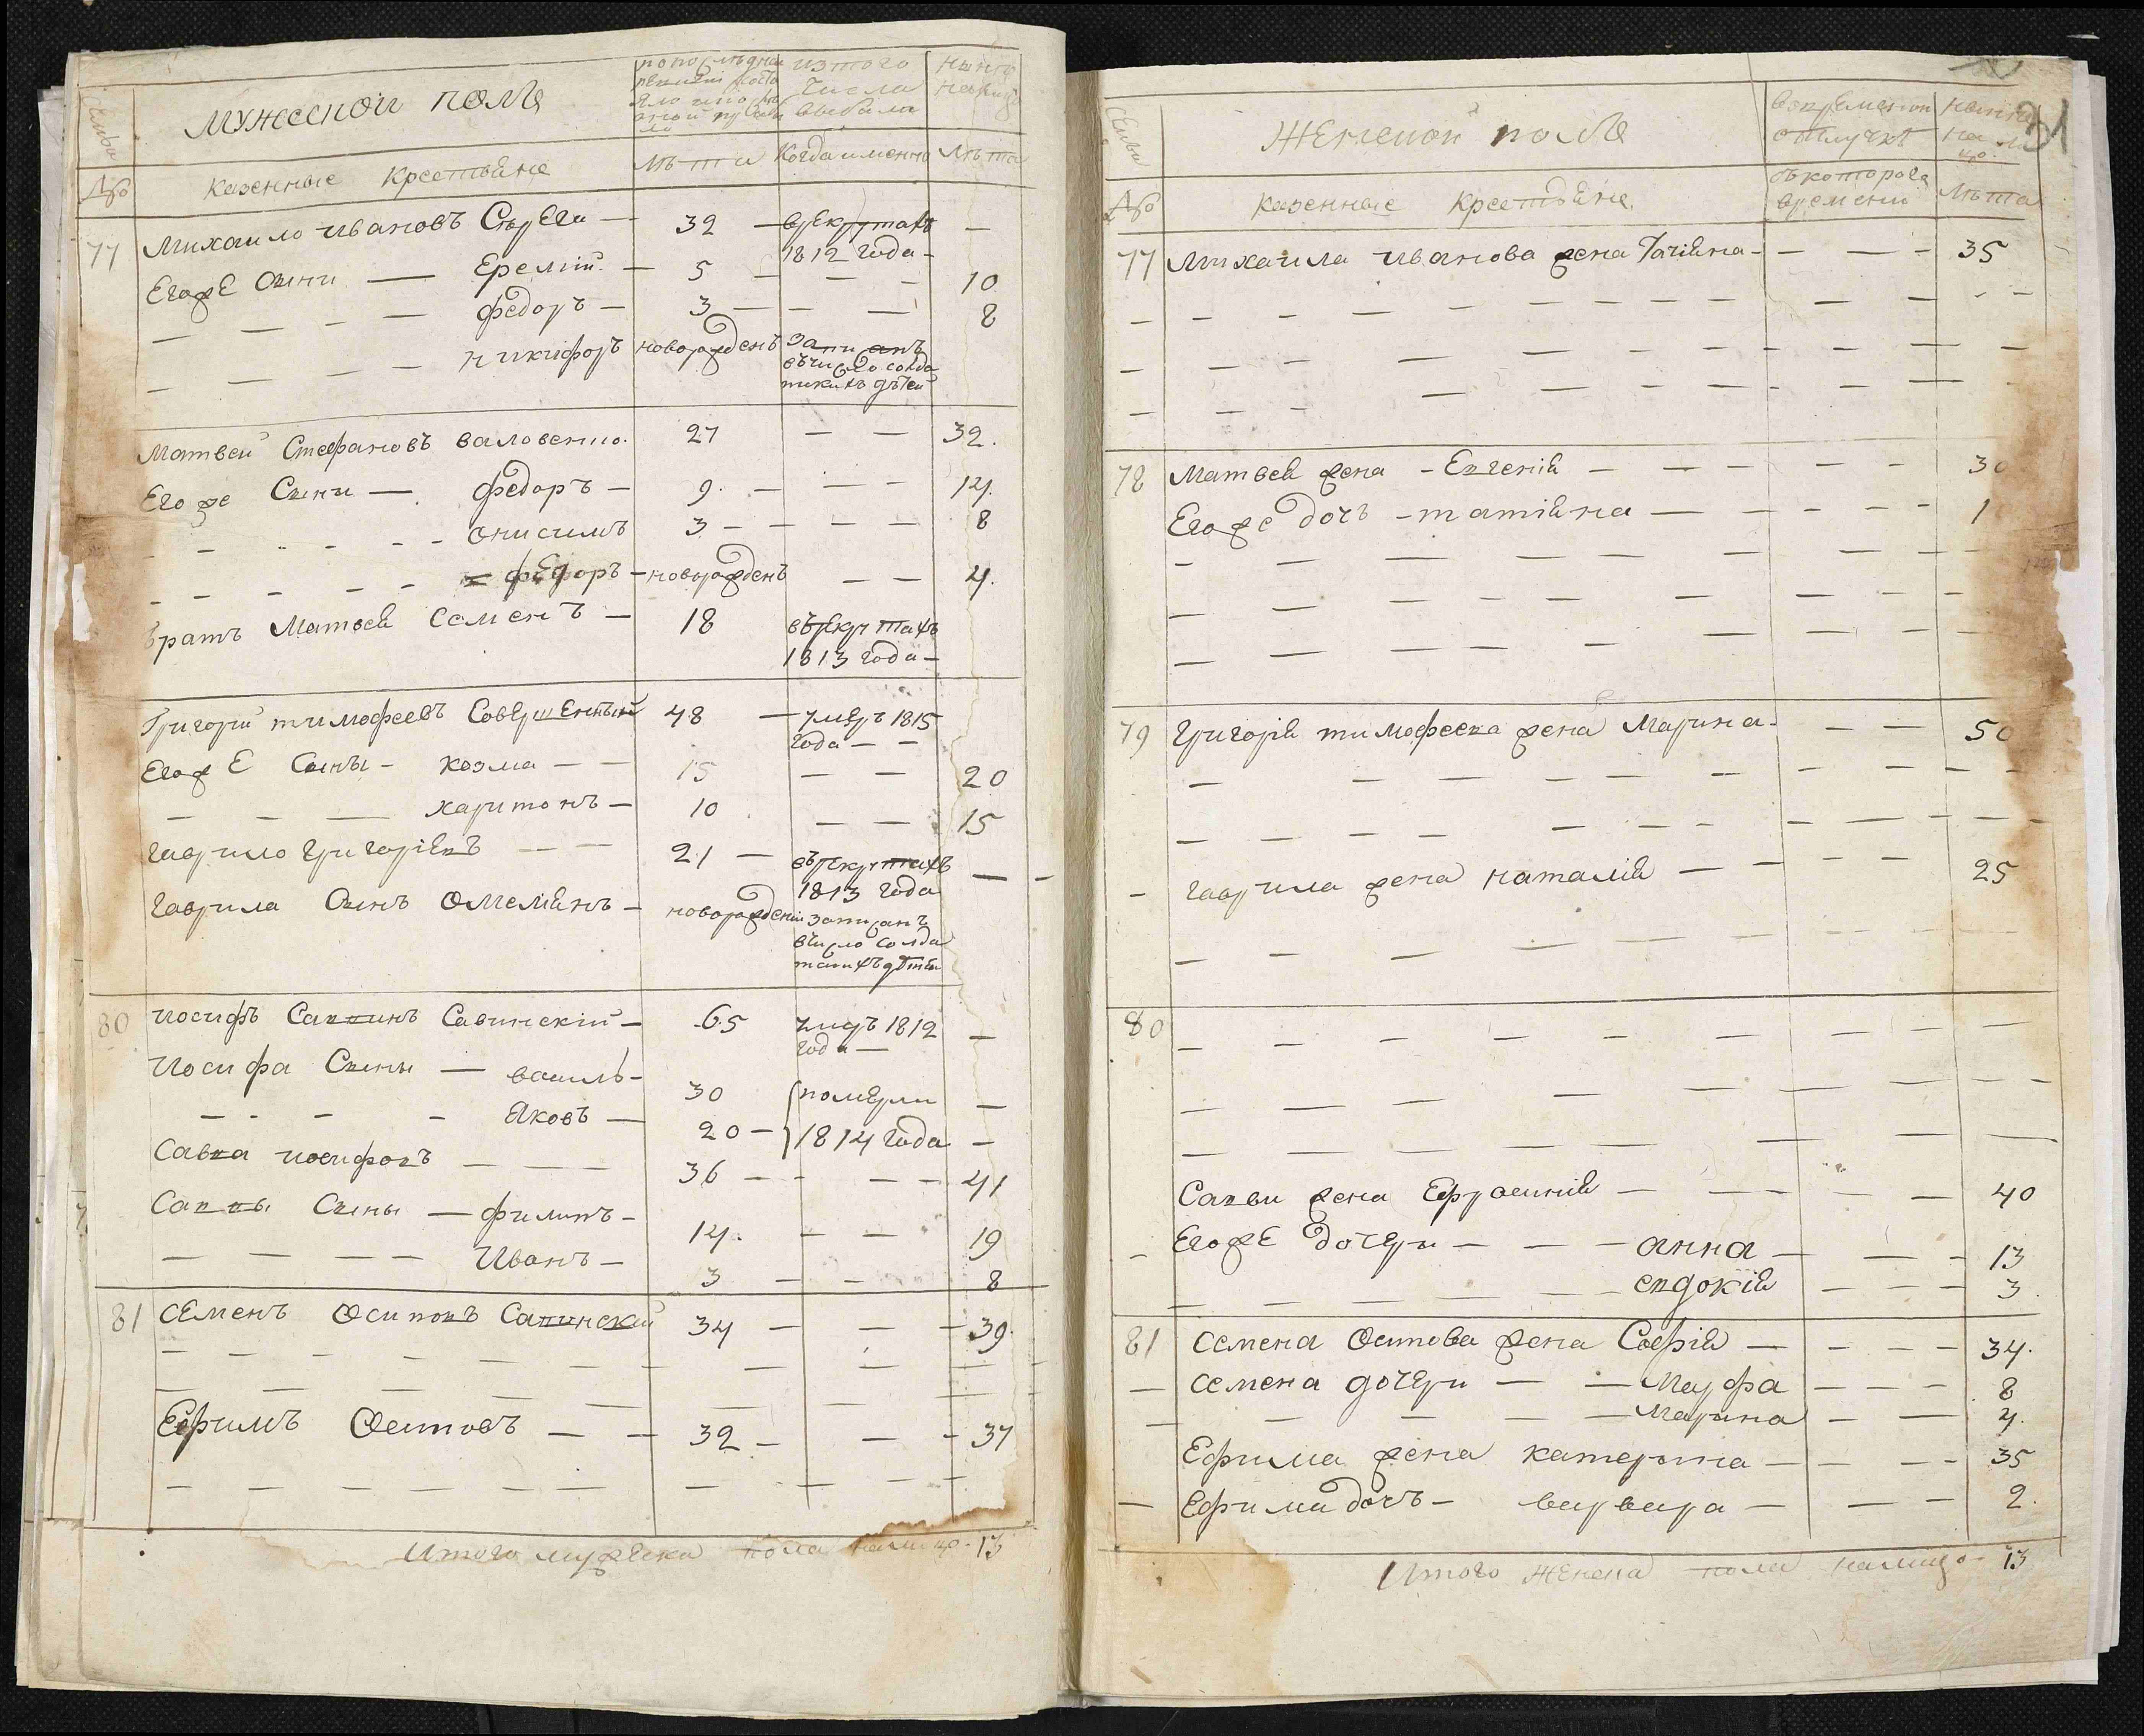 Мужескои полъ
по последней
ревизіи состо
яло и по
ло
изтого
числа
выбыло
ныне
налицо
Семьи
№
казенные крестьяне
лѣта
Когда именно
лѣта
77 Михаило Ивановъ — 32 — врекрутахъ —
1812 года —
Егоже Сыни — Еремій — 5 — — — 10
— — — — федоръ — 3 — — — 8
— — — — никифоръ новорожденъ записанъ
въчисло солда
тскихъ дѣтей
Матвеи Стефановъ 27 — — 32.
Егоже Сыни — федоръ — 9. — — — 14.
— — — — онисимъ 3 — — — — 8
— — — — — федоръ — новорожденъ — — 4.
братъ Матвея Семенъ — 18 върекрутахъ
1813 года —
Григорій тимофеевъ Совершенный 48 — умеръ 1815
года — —
Егоже Сыны — козма — — 15 — — 20
— — — харитонъ — 10 — — 15
гаврило григоріевъ — — 21 — върекрутахъ — —
1813 года
гаврила Сынъ Омеліянъ — новорожденій записанъ
вчисло солда
тскихъ дѣтей
80 иосифъ Саввинъ Савинскій — 65 умеръ 1812 —
года —
Иосифа Сыны — василь — 30 померли —
— — — — Яковъ — 20 — 1814 года —
Савва иосифовъ — — — 36 — — — — 41
Саввы Сыны — филипъ — 14. — — 19
— — — — Иванъ — 3 — — 8
81 Семенъ Осиповъ Савинскій 34 — — — 39.
— — — — — — — — — — —
— — — — — — — — —
Ефимъ Осиповъ — — 32 — — — 37
— — — — — — — — — — —
Итого мужеска пола налицо — 13
Женской полъ
Семьи
вовременной
отлучкѣ
ныне
на ли
цо.
31
№
казенные крестьяне.
съкотораго
времени
лѣта
77 Михаила Иванова жена Татіяна — — — — 35
— — — — — — — — — — — — —
— — — — — — — — — — — —
— — — — — — — — — — —
78 Матвея жена — Евгенія — — — — — 30
Егоже дочь — татіяна — — — — — 1
— — — — — — — — —
— — — — — — — — — —
— — — — — — — — —
79 Григорія тимофеева жена Марина — — — 50
— — — — — — — — — — —
— — — — — — — — — — — —
— гаврила жена наталія — — — — 25
— — — — — — — — — — —
80 — — — — — — — — — —
— — — — — — — — —
— — — — — — — —
Савви жена Ефросинія — — — — — 40
— Егоже дочери — — — анна — — — 13
— — — — — — евдокія — — — 3.
81 семена Осипова жена Софія — — — — 34.
— семена дочери — — Марфа — — — 8
— — — — — Марина — — 4.
Ефима жена катерина — — — — 35
— Ефима дочь — варвара — — — 2.
Итого женска пола налицо — 13